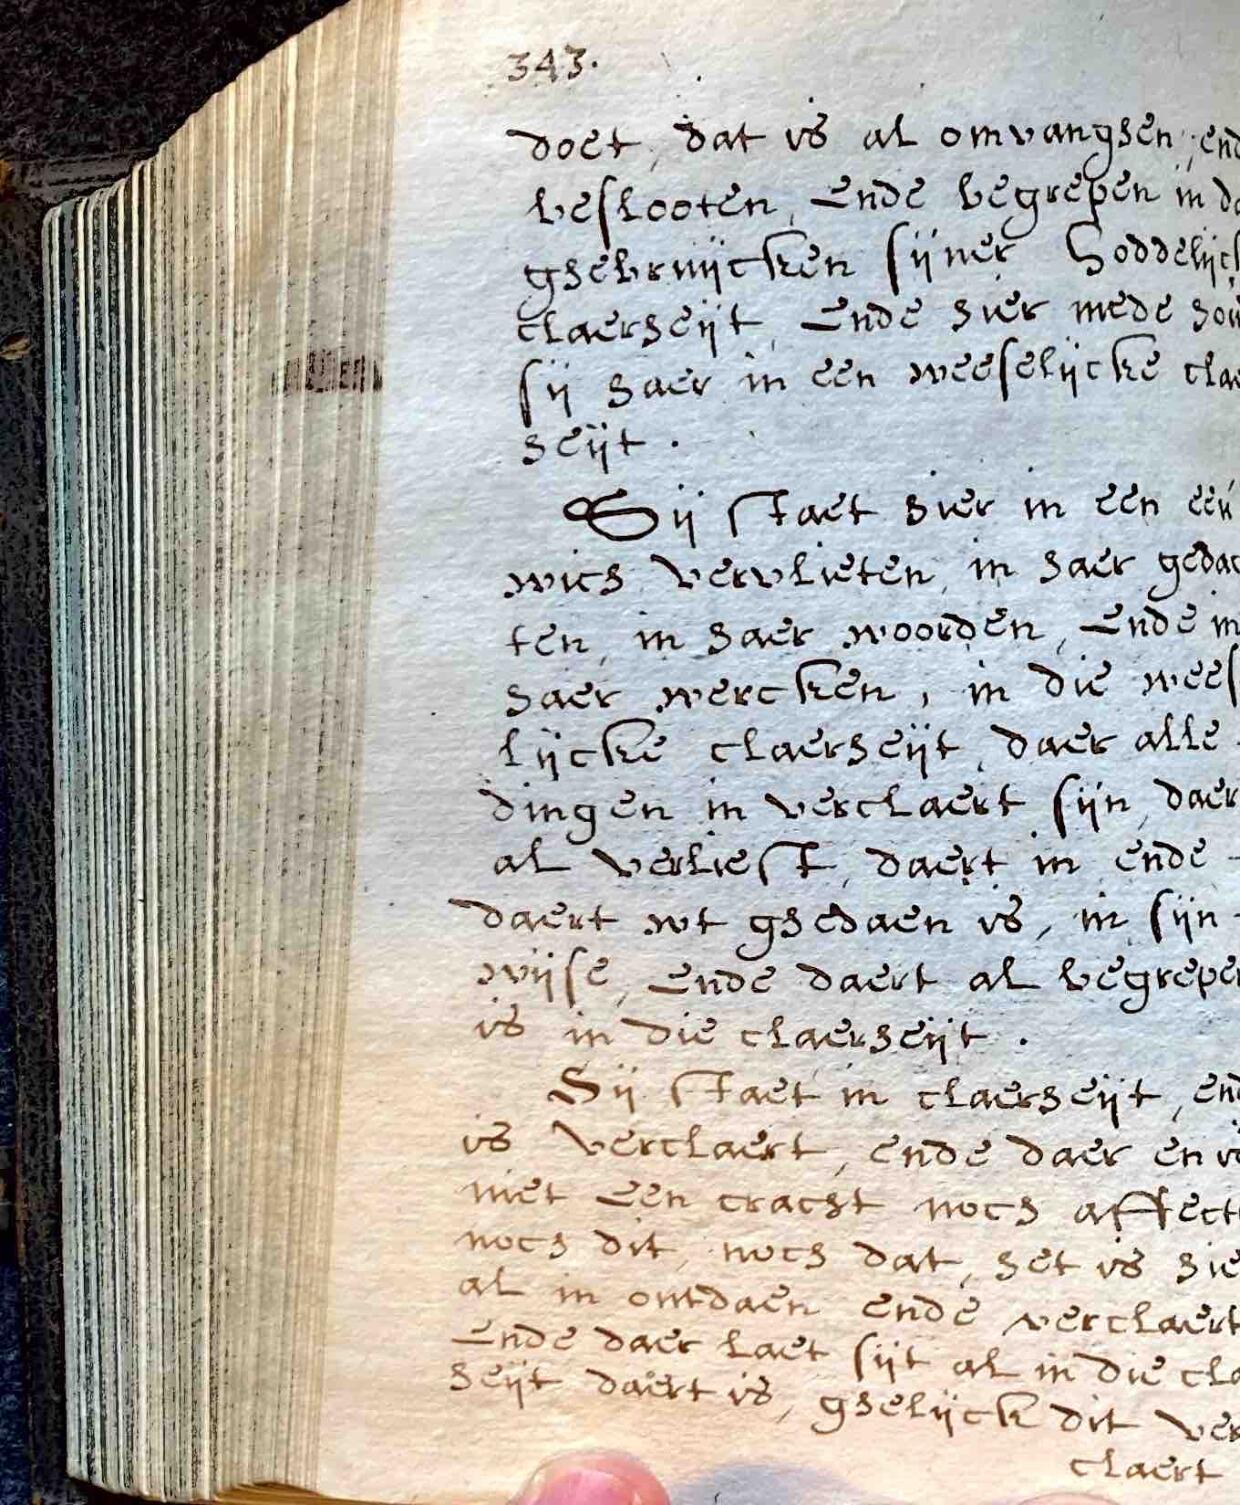 343.
doet, dat is al omvanghen, end
beslooten, Ende begrepen in d
ghebruijcken sijner Goddelijck
claerheijt, Ende hier mede
sij haer in een weeselijcke clae
heijt.
Sij staet hier in een eeu
wich vervlieten, in haer gedac
ten, in haer woorden, Ende in
haer wercken, in die wees
lijcke claerheijt, daer alle
dingen in verclaert sijn, daer
al verliest, daert in ende
daert wt ghedaen is, in sijn
wijse, Ende daert al begrepen
is in die claerheijt.
Sij staet in claerheijt, end
is verclaert, ende daer en is
niet een cracht noch affect
noch dit, noch dat, het is hie
al in ontdaen ende verclaert
Ende daer laet sijt al in die cla
heijt daert is, ghelijck dit ver
claert